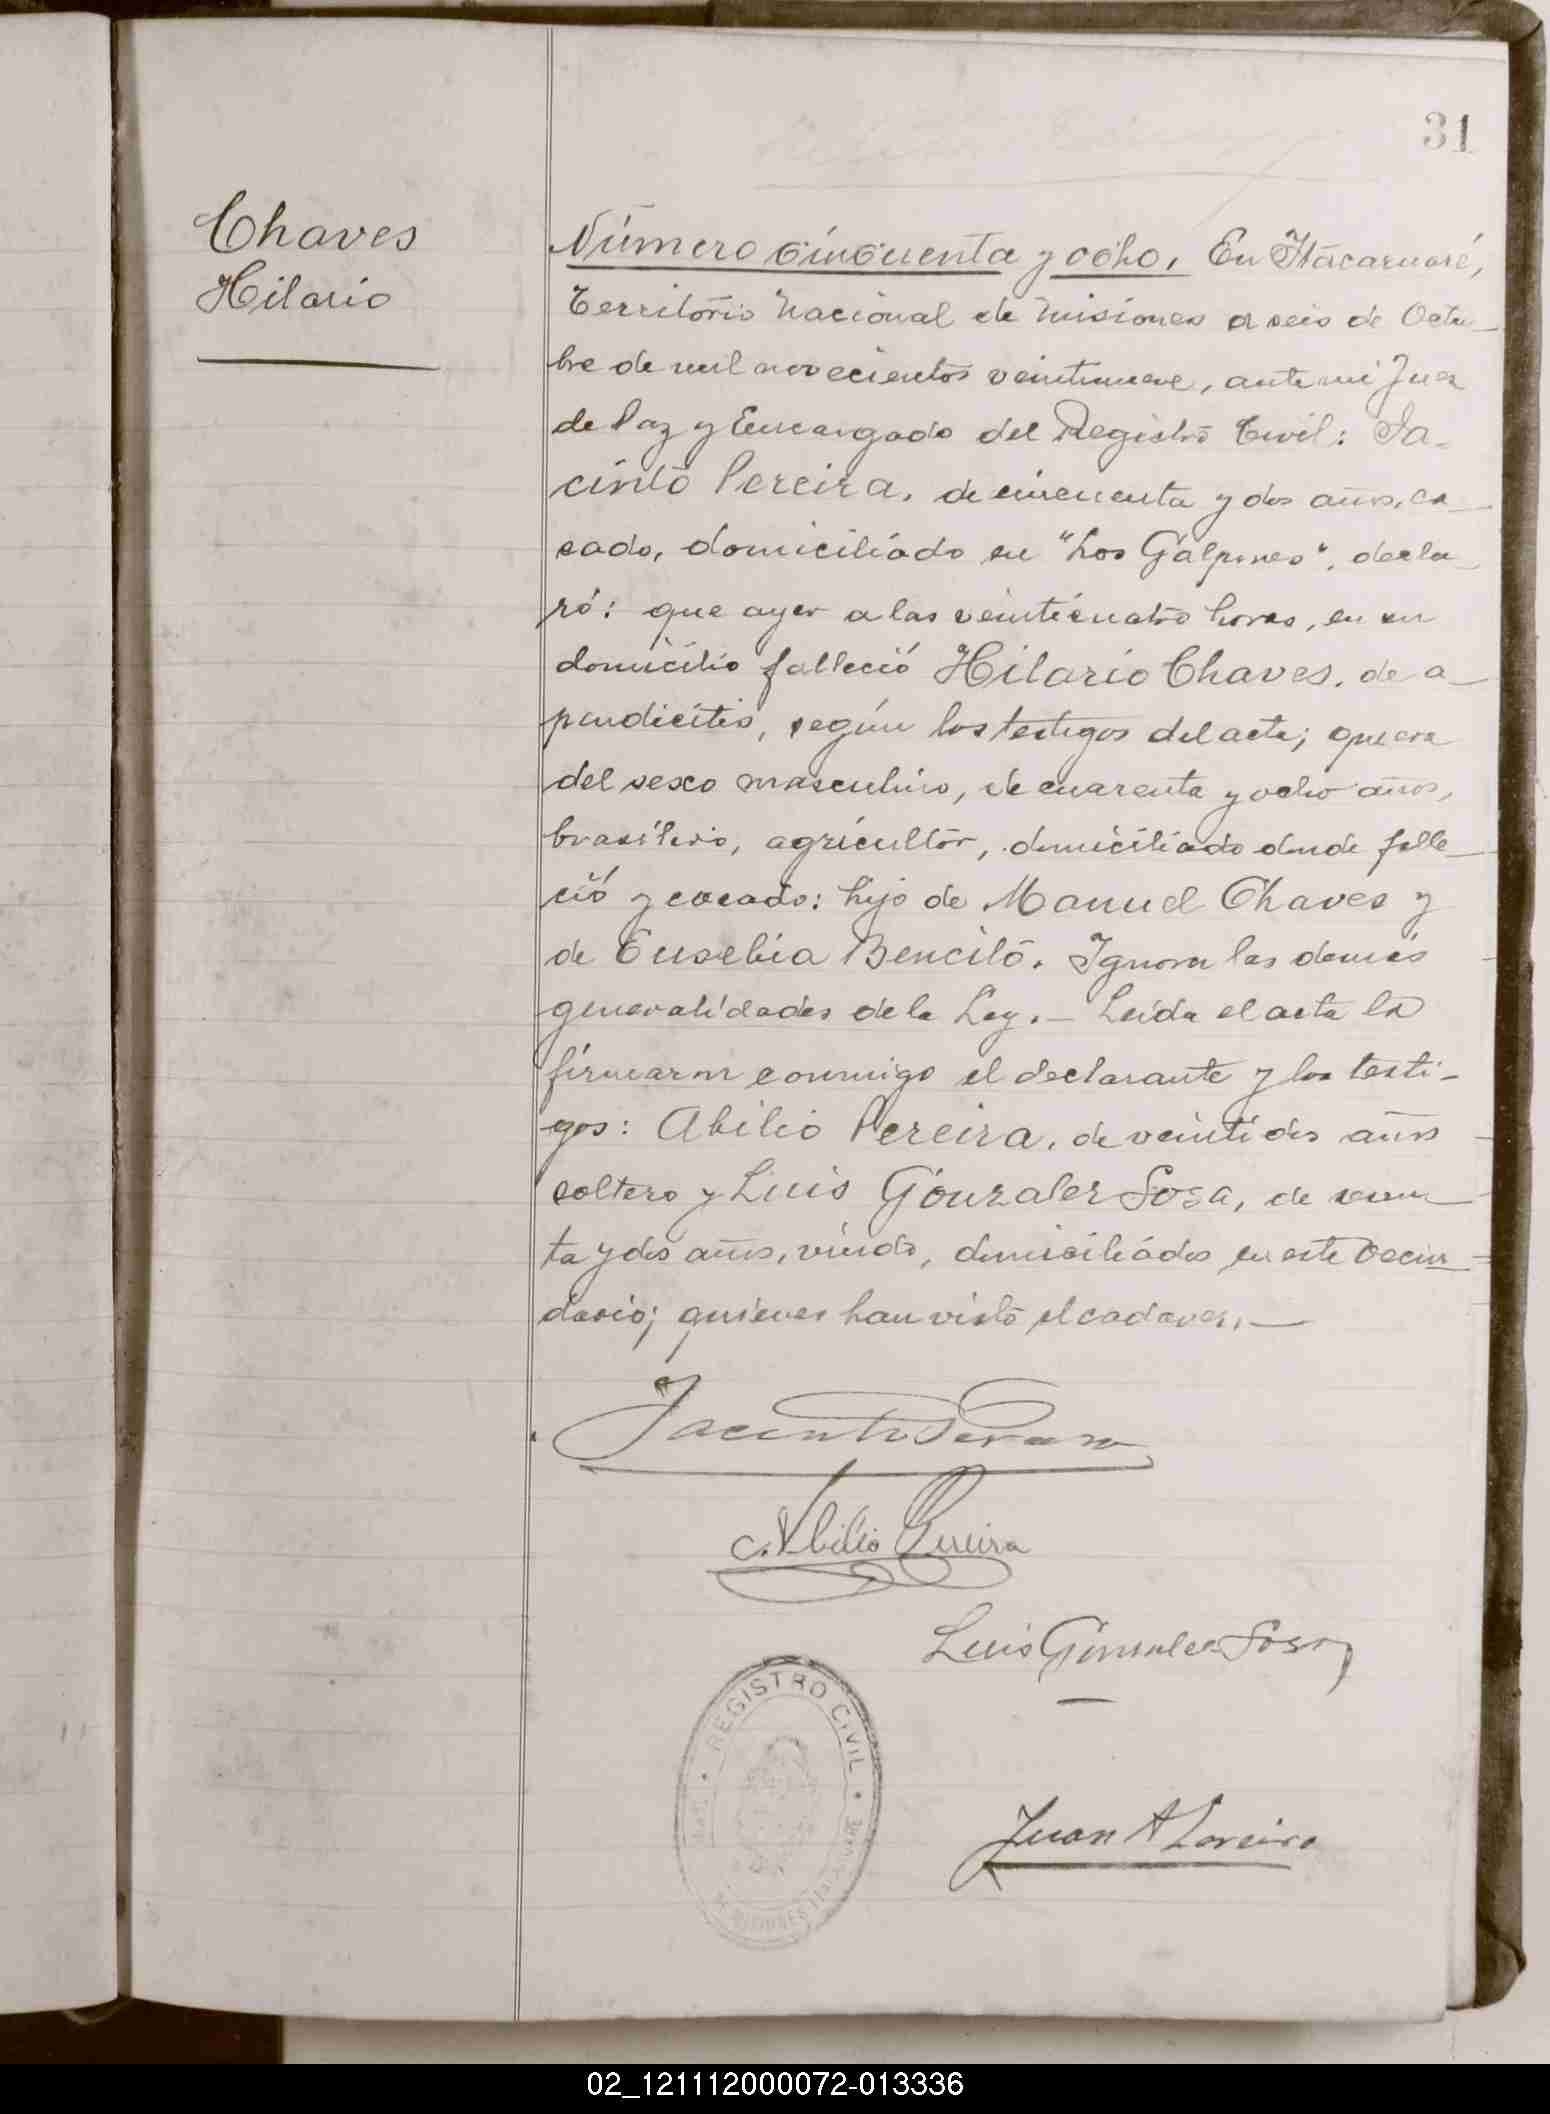 31
Chaves
Hilario
Número cincuenta y ocho. En Itacaruaré,
Territorio Nacional de Misiones a seis de Octu-
bre de mil novecientos veintinueve, ante mi Juez
de Paz y Encargado del Registro Civil: Ja-
cinto Pereira, de cincuenta y dos años, ca-
sado, domiciliado en "Los Galpones", decla-
ró: que ayer a las veinticuatro horas, en su
domicilio falleció Hilario Chaves, de a-
pendicitis, según los testigos del acta; que era
del sexo masculino, de cuarenta y ocho años,
brasilero, agricultor, domiciliado donde falle-
ció y casado: hijo de Manuel Chaves y
de Eusebia Bencitó. Ignora las demás
generalidades de la Ley. — Leída el acta la
firmaron conmigo el declarante y los testi-
gos: Abilio Pereira, de veintidos años
soltero y Luis Gónzalez Sosa, de
ta y dos años, viudo, domiciliados en este vecin-
dario; quienes han visto el cadaver. —
Jacinto Pereira
Abilio Pereira
Luis Gonzalez Sosa
REGISTRO CIVIL
MISIONES
Juan A Loreiro
02_121112000072-013336